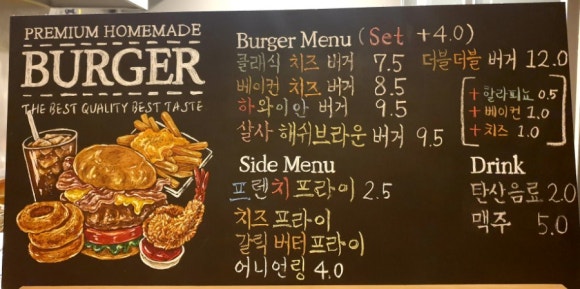 PREMIUM HOMEMADE
BURGER
THE BEST QUALITY BEST TASTE
Burger Menu (Set +4.0)
클래식 치즈 버거 7.5
베이컨 치즈 버거 8.5
하와이안 버거 9.5
살사 해쉬브라운 버거 9.5
더블더블 버거 12.0
+ 할라피뇨 0.5
+ 베이컨 1.0
+ 치즈 1.0
Side Menu
프렌치 프라이 2.5
치즈 프라이
갈릭 버터 프라이
어니언링 4.0
Drink
탄산음료 2.0
맥주 5.0